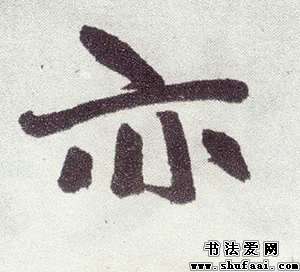 亦
书法爱网
www.shufaai.com